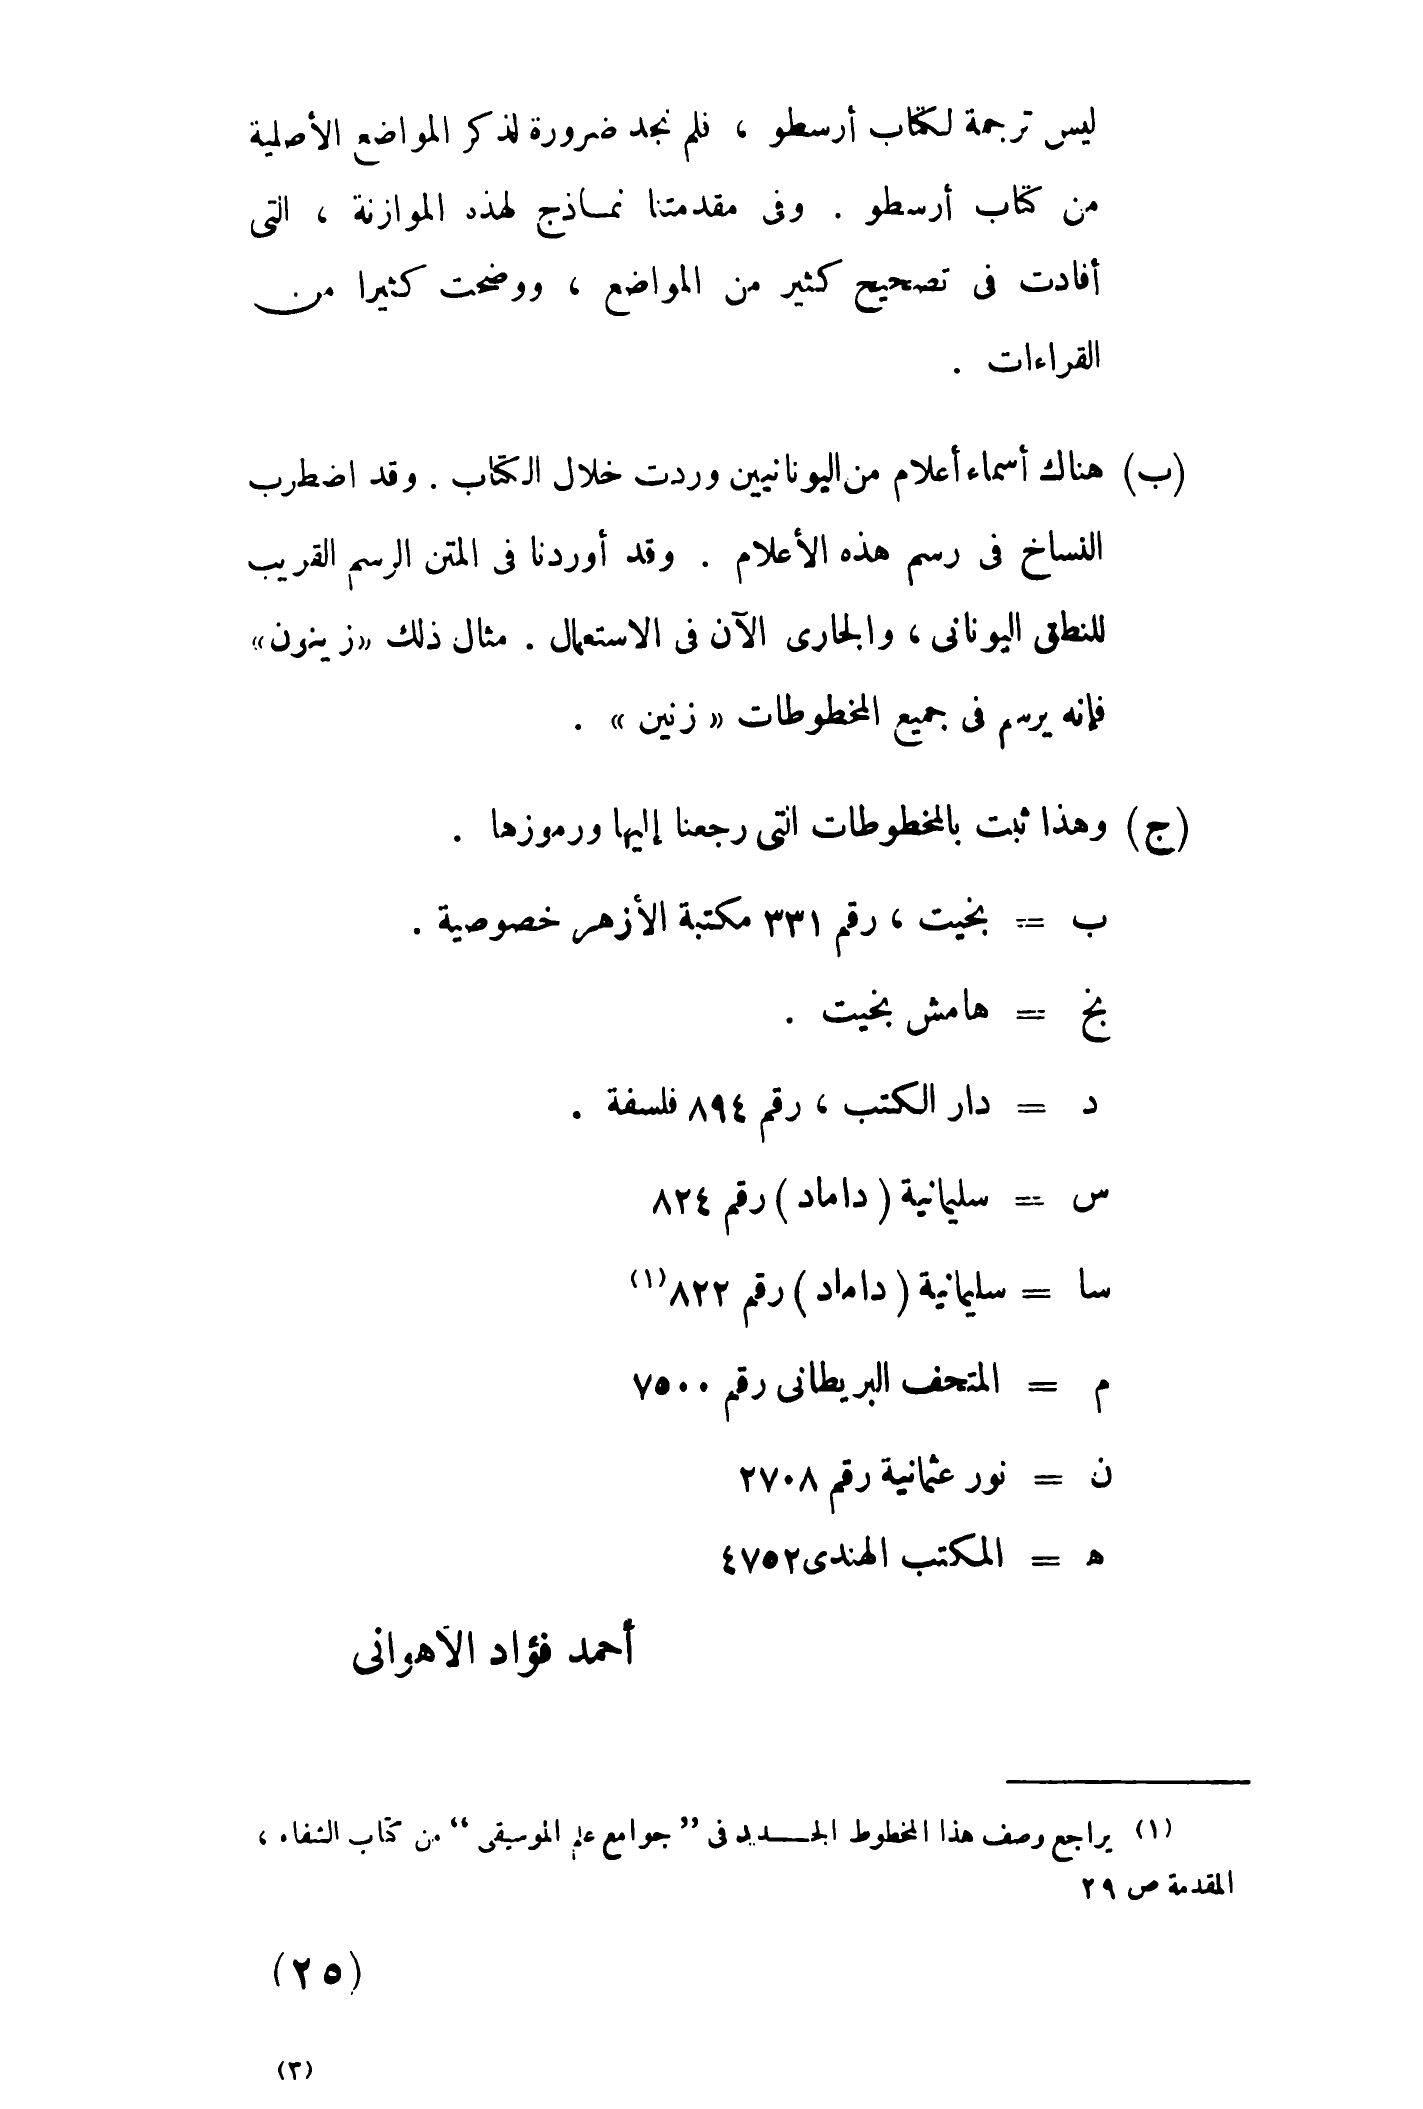 ليس ترجمة لكتاب أرسطو ، فلم نجد ضرورة لذكر المواضع الأصلية
من كتاب أرسطو . وفى مقدمتنا نماذج لهذه الموازنة ، التى
أفادت فى تصحيح كثير من المواضع ، ووضحت كثيرا من
القراءات .
(ب) هناك أسماء أعلام من اليونانيين وردت خلال الكتاب . وقد اضطرب
النساخ فى رسم هذه الأعلام . وقد أوردنا فى المتن الرسم القريب
للنطق اليونانى ، والجارى الآن فى الاستعمال . مثال ذلك «زينون»
فإنه يرسم فى جميع المخطوطات « زنين » .
(ج) وهذا ثبت بالمخطوطات التى رجعنا إليها ورموزها .
ب = بخيت ، رقم ٣٣١ مكتبة الأزهر خصوصية .
بخ = هامش بخيت .
د = دار الكتب ، رقم ٨٩٤ فلسفة .
س = سليمانية ( داماد ) رقم ٨٢٤
سا = سليمانية ( داماد ) رقم ٨٢٢(١)
م = المتحف البريطانى رقم ٧٥٠٠
ن = نور عثمانية رقم ٢٧٠٨
ه = المكتب الهندى ٤٧٥٢
أحمد فؤاد الأهوانى
(١) يراجع وصف هذا المخطوط الجديد فى ” جوامع علم الموسيقى “ من كتاب الشفاء ،
المقدمة ص ٢٩
(٢٥)
(٣)